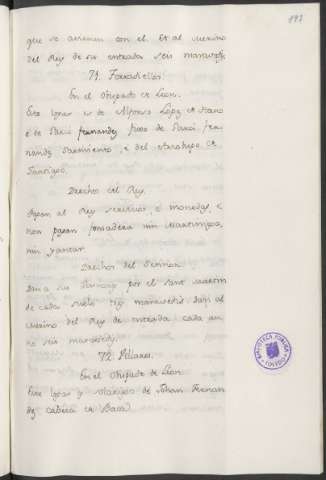 197
que se avienen con el. Et al merino
del Rey de su entrada seis maravedis.
71. Favadiellos.
En el Obispado de Leon.
Este logar es de Alfonso Lopez de
e de Pero fernandez fijos de Pero fer-
nandez Sarmiento, e del Arzobispo de
Santiago.
Derechos del Rey.
Pagan al Rey servicios e monedas e
non pagan fonsadera nin martiniega,
nin yantar.
Derechos del Señor.
Dan a sus Señores por el sant martin
de cada suelo tres maravedis dan al
merino del Rey de entrada cada an-
no seis maravedis.
72. Villanes.
En el Obispado de Leon.
Este logar es solariego de Johan Fernan-
dez cabeza de Baca
BIBLIOTECA PUBLICA
TOLEDO